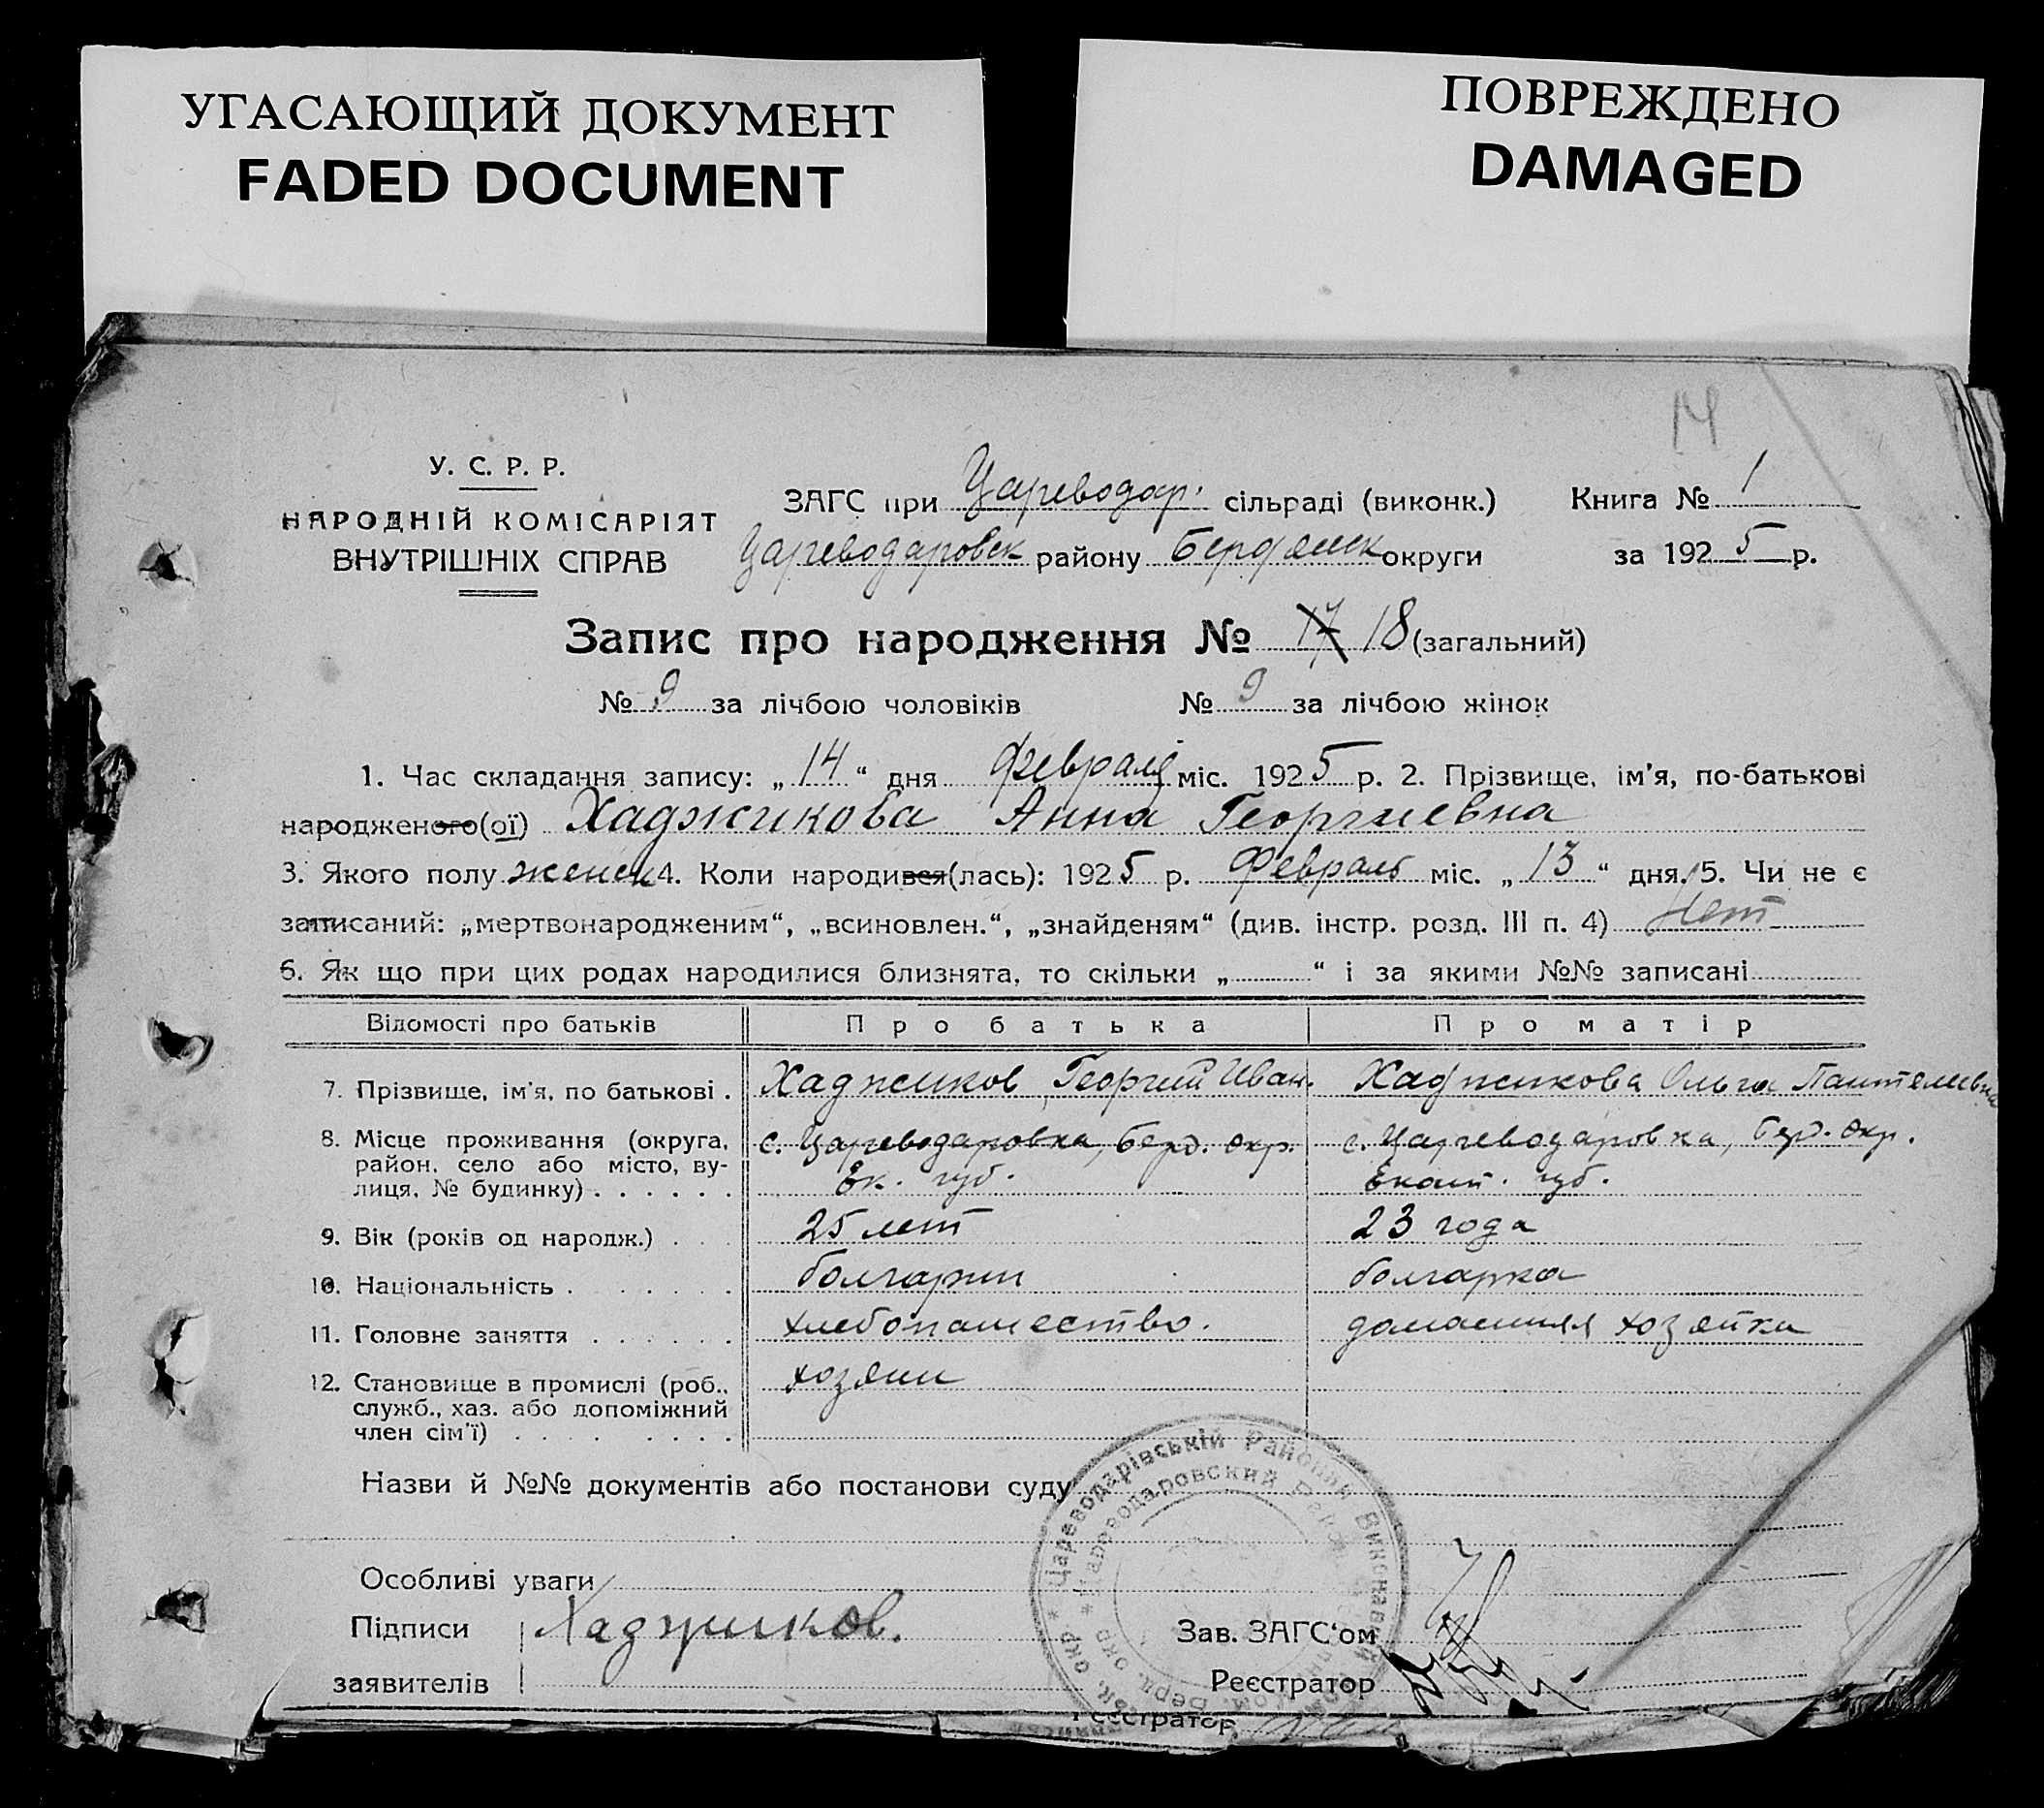 УГАСАЮЩИЙ ДОКУМЕНТ
FADED DOCUMENT
ПОВРЕЖДЕНО
DAMAGED
14
У. С. Р. Р.
НАРОДНІЙ КОМІСАРІЯТ
ВНУТРІШНІХ СПРАВ
ЗАГС при Цареводар. сільраді (виконк.) Книга № 1
Цареводаровск району Бердянск округи за 1925 р.
Запис про народження № 17 18 (загальний)
№ 9 за лічбою чоловіків № 9 за лічбою жінок
1. Час складання запису: „14“ дня февраля міс. 1925 р. 2. Прізвище, ім’я, по-батькові
народженого(ої) Хаджикова Анна Георгиевна
3. Якого полу женск 4. Коли народився(лась): 1925 р. Февраль міс. „13“ дня. 5. Чи не є
записаний: „мертвонародженим“, „всиновлен.“, „знайденям“ (див. інстр. розд. III п. 4) Нет
6. Як що при цих родах народилися близнята, то скільки „ “ і за якими №№ записані
Відомості про батьків Про батька Про матір
7. Прізвище, ім’я, по батькові . Хаджиков Георгий Иван. Хаджикова Ольга Пантелеевна
8. Місце проживання (округа, с. Цареводаровка, Берд. окр. с. Цареводаровка, Берд. окр.
район, село або місто, ву-
лиця, № будинку) . . . . . . Ек. губ. Екат. губ.
9. Вік (років од народж.) . . . 25 лет 23 года
10. Національність . . . . . . . болгарин болгарка
11. Головне заняття . . . . . . хлебопашество. домашняя хозяйка
12. Становище в промислі (роб., хозяин
служб., хаз. або допоміжний
член сім’ї) . . . . . . . . .
Назви й №№ документів або постанови суду
Особливі уваги
Підписи Хаджиков. Зав. ЗАГС‘ом
заявителів Реєстратор
Реєстратор
Цареводарівській Районий Виконавчий
Цареводаровский